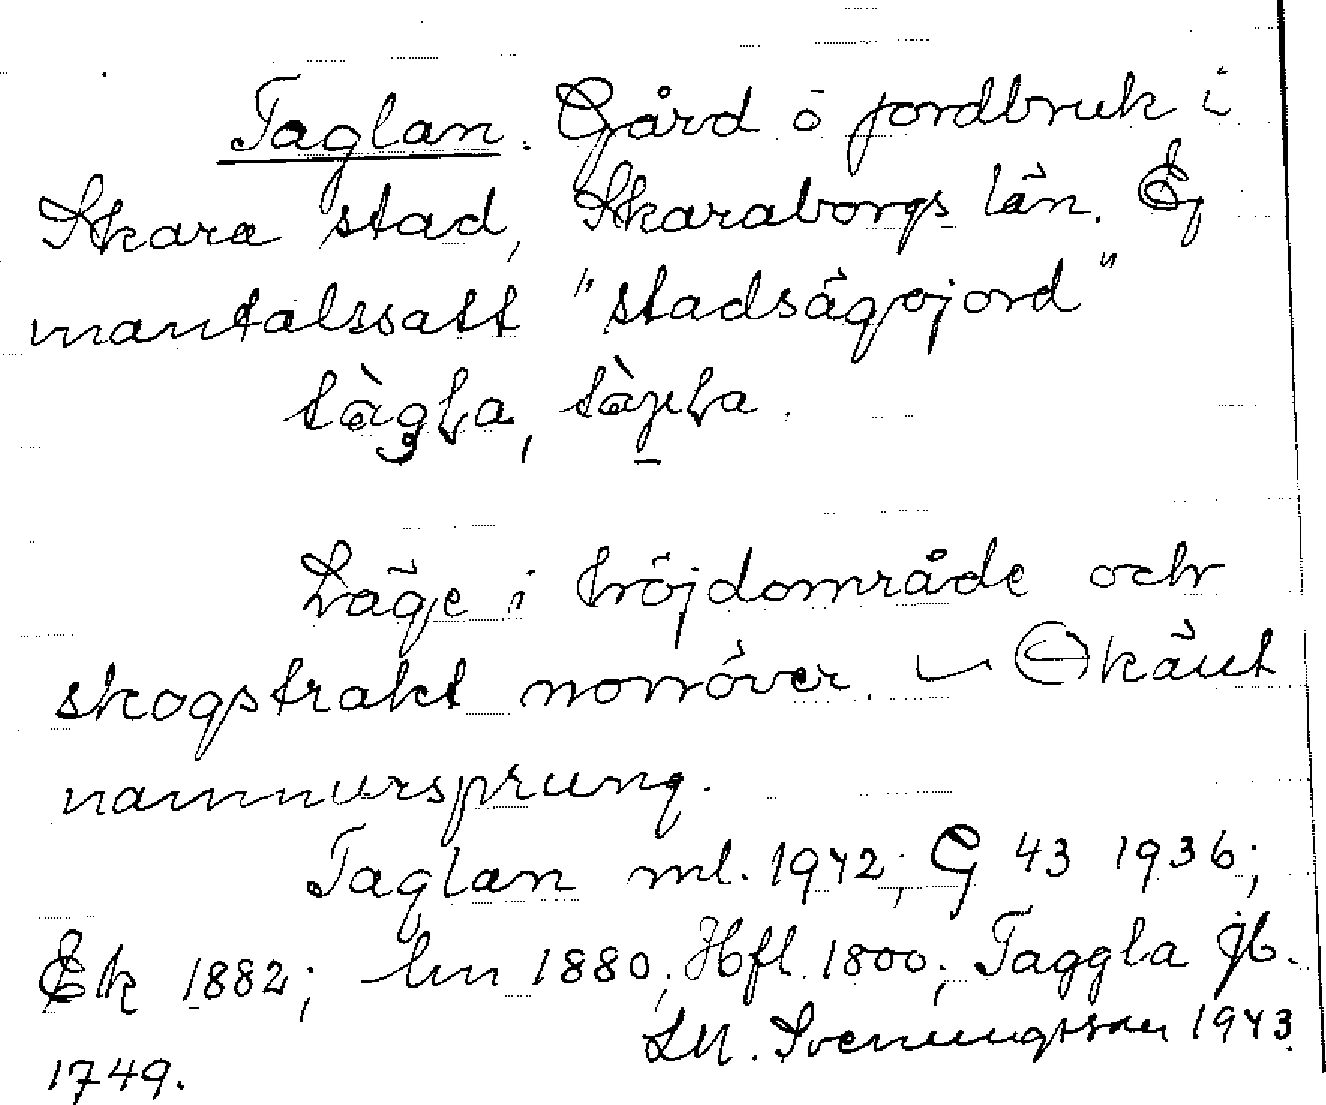 Taglan. Gård o jordbruk i
Skara stad, Skaraborgs län. Ej
mantalssatt "stadsägojord"
Läge i höjdområde och
skogstrakt norröver. — Okänt
namnursprung.
Taglan ml. 1942; G 43 1936;
Ek 1882; lm 1880; Hfl. 1800; Taggla Jb.
1749.
LM. Svenungsson 1943